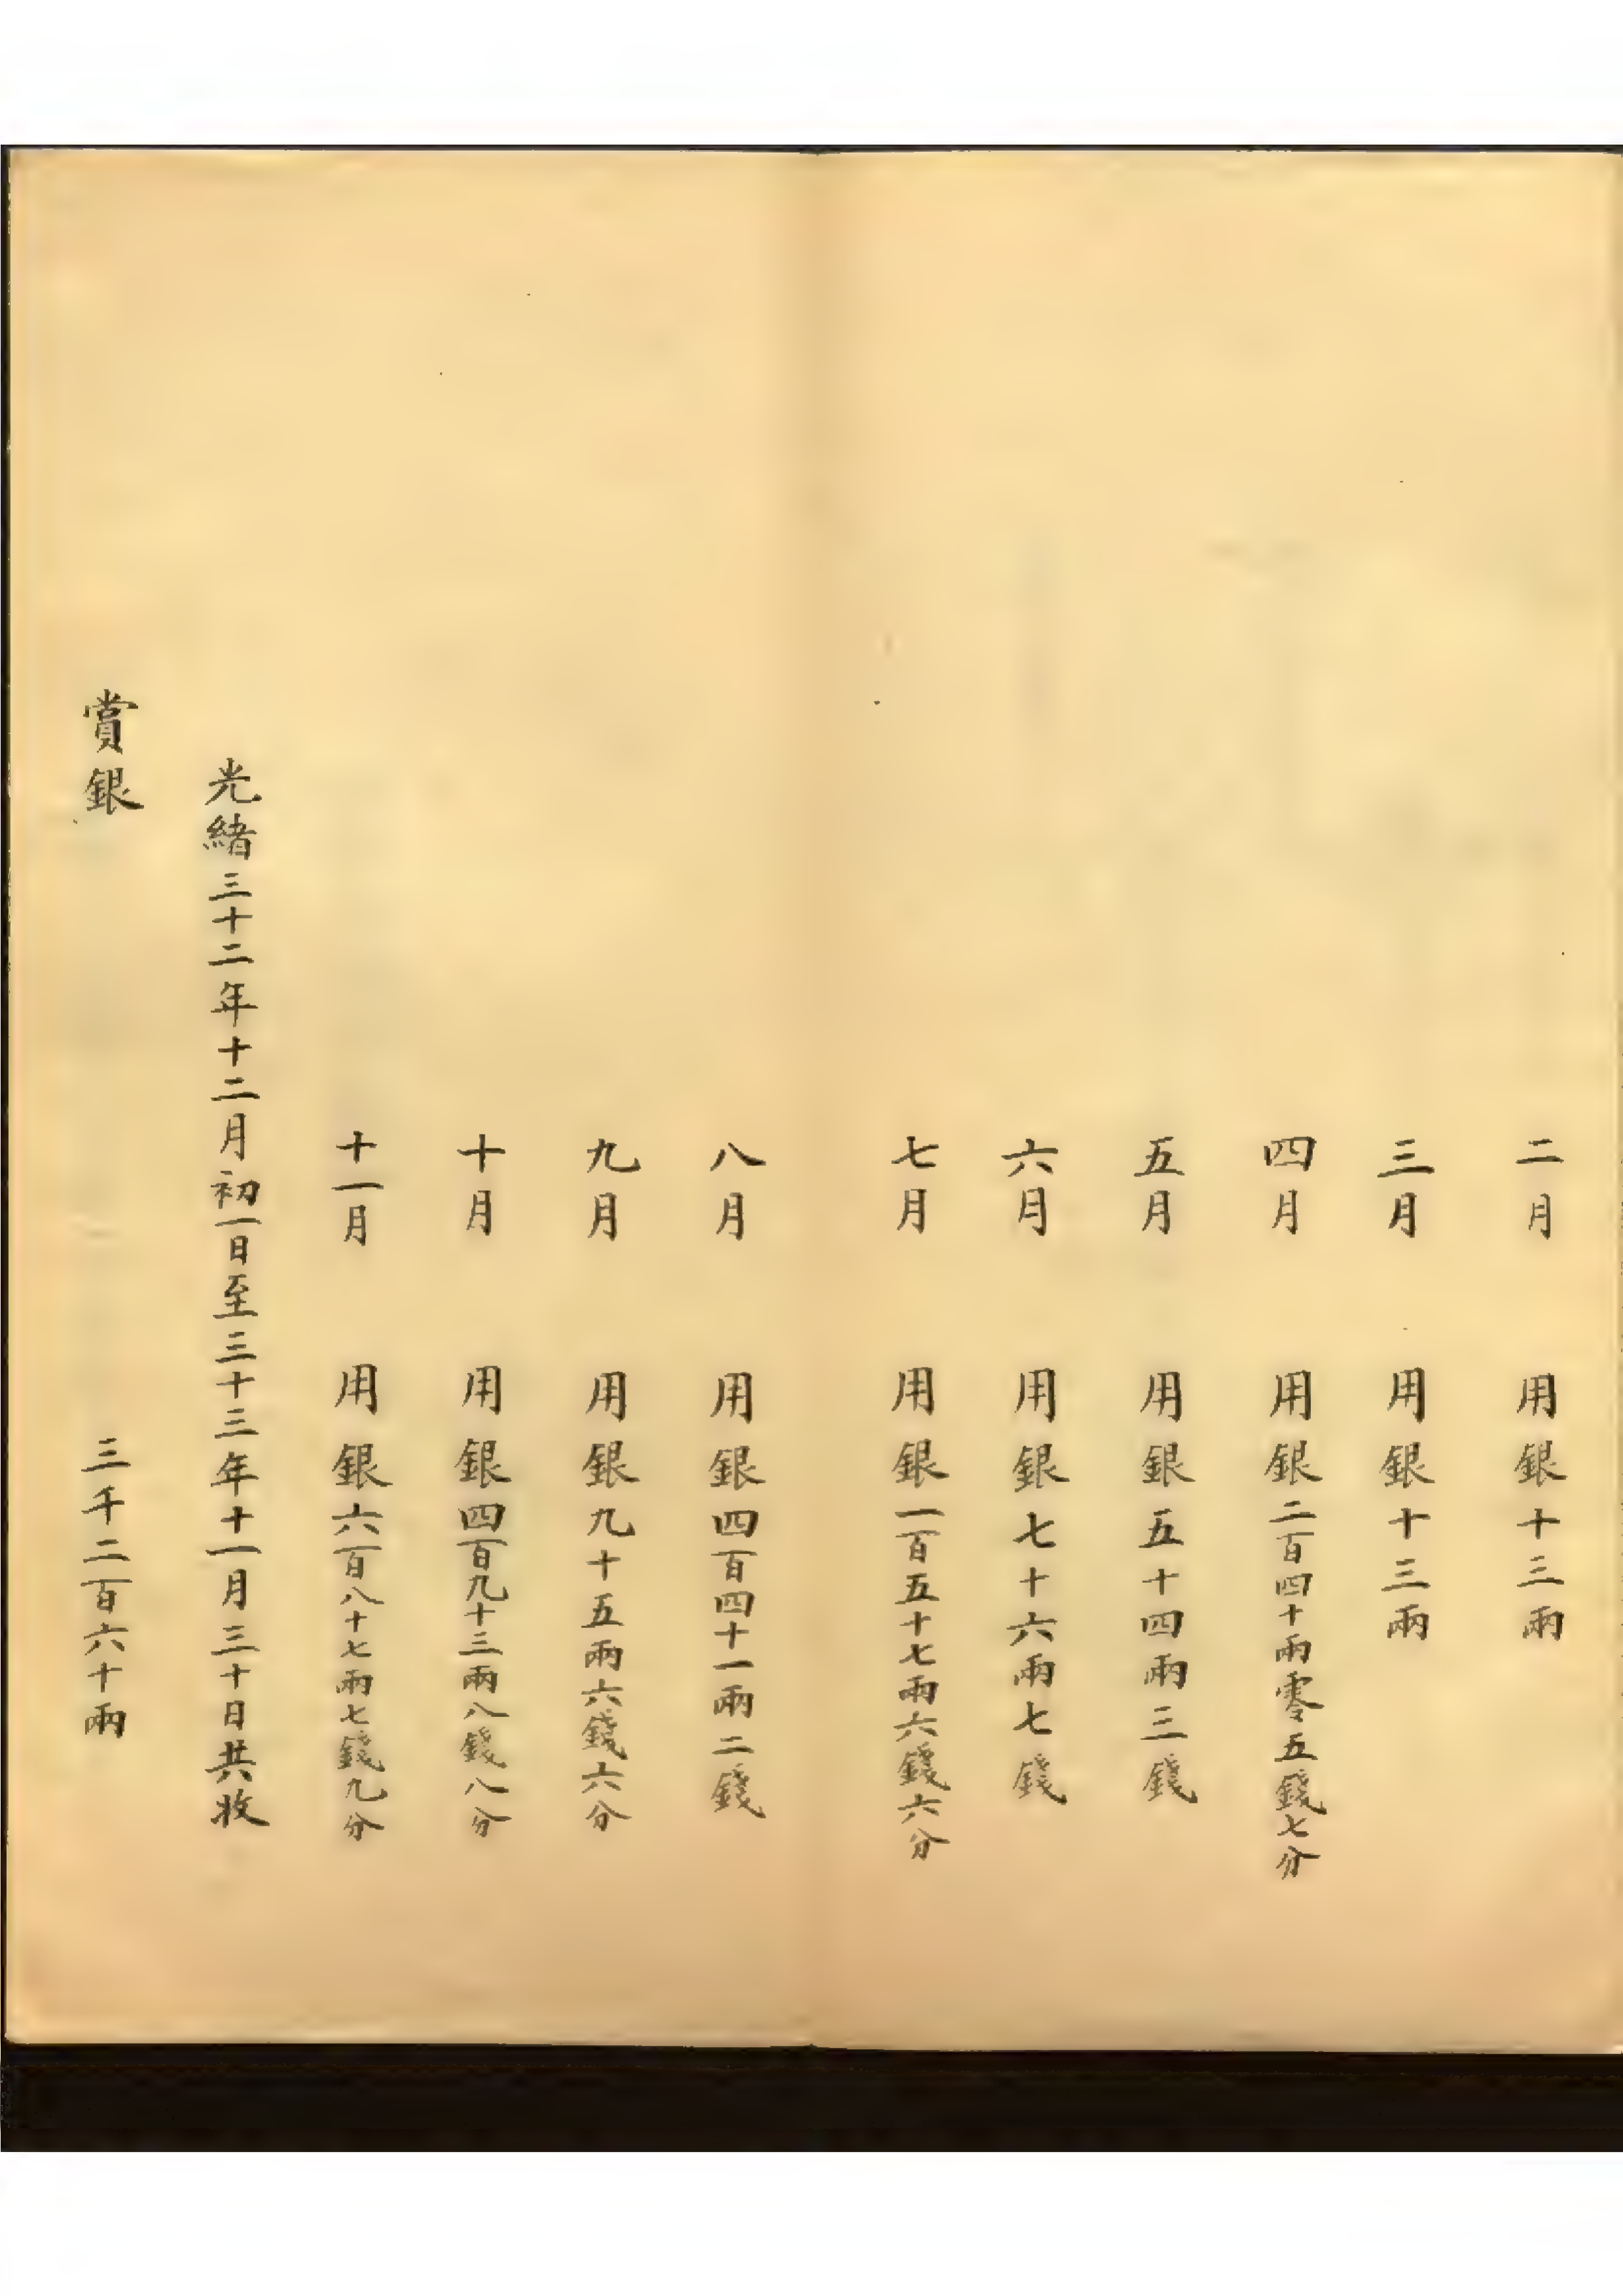 二月 用銀十三兩
三月 用銀十三兩
四月 用銀二百四十兩零五錢七分
五月 用銀五十四兩三錢
六月 用銀七十六兩七錢
七月 用銀一百五十七兩六錢六分
八月 用銀四百四十一兩二錢
九月 用銀九十五兩六錢六分
十月 用銀四百九十三兩八錢八分
十一月 用銀六百八十七兩七錢九分
光緒三十二年十二月初一日至三十三年十一月三十日共收
賞銀 三千二百六十兩